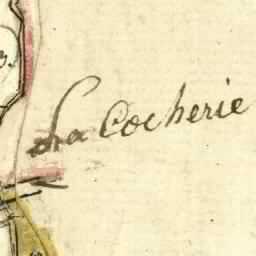 La Cocherie